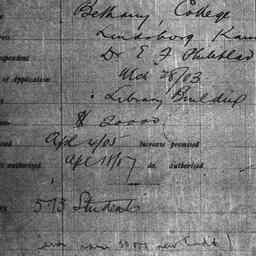 Bethany, College
ress Lindsborg Kan
spondent Dr E F Philblad
of Application Mch 28/03
Library Building
$ 20000
ised Apl 4/05 Increase promised
ts authorized Apl 18/07 do. authorized
573 Students